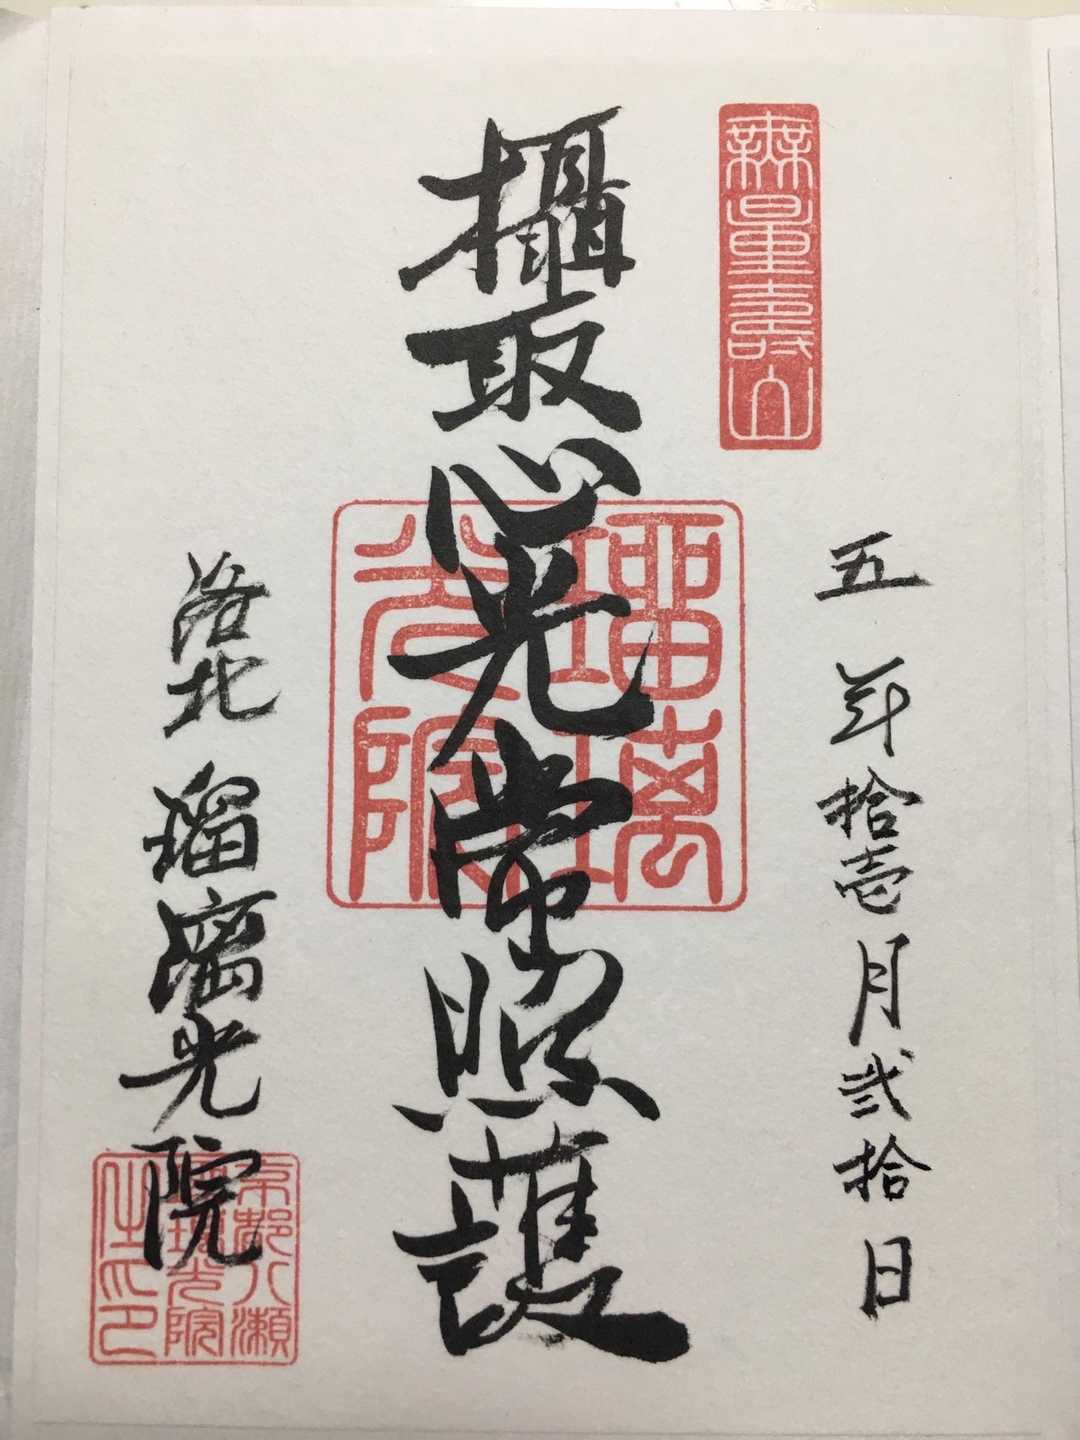 無量壽山
五年拾壱月弐拾日
攝取心光常照護
瑠璃光院
洛北 瑠璃光院
京都八瀬
瑠璃光院
之印